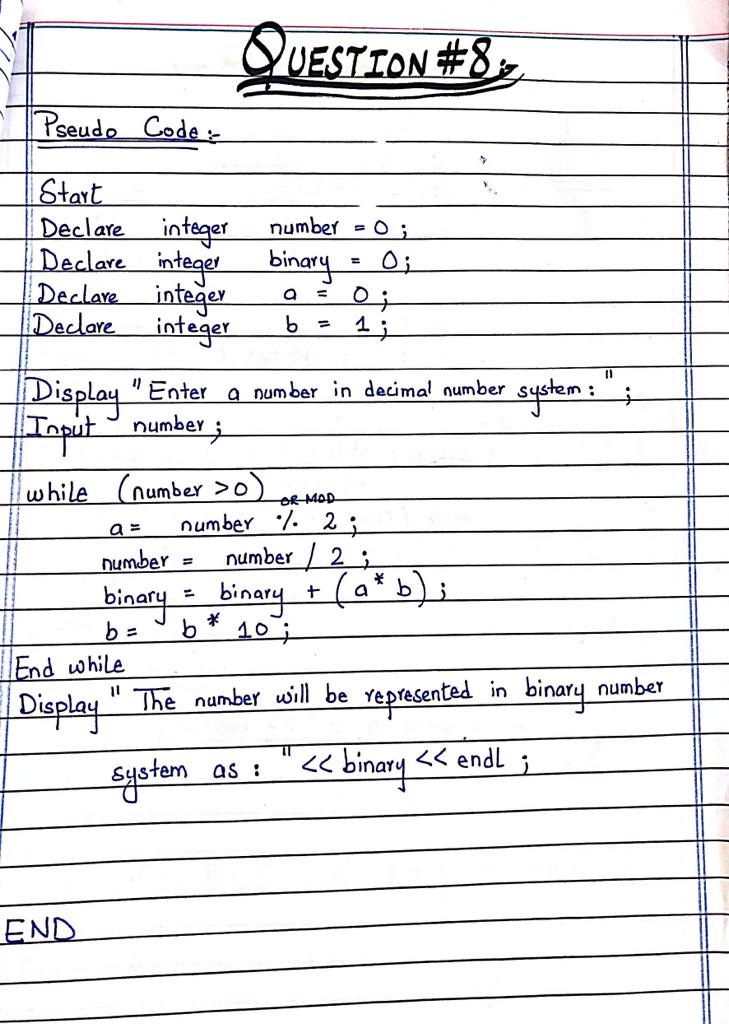 QUESTION #8:-
Pseudo Code:-
Start
Declare integer number = 0 ;
Declare integer binary = 0;
Declare integer a = 0 ;
Declare integer b = 1 ;
Display "Enter a number in decimal number system : " ;
Input number ;
while (number >0)
OR MOD
a = number % 2 ;
number = number / 2 ;
binary = binary + (a * b) ;
b = b * 10 ;
End while
Display " The number will be represented in binary number
system as : " << binary << endl ;
END